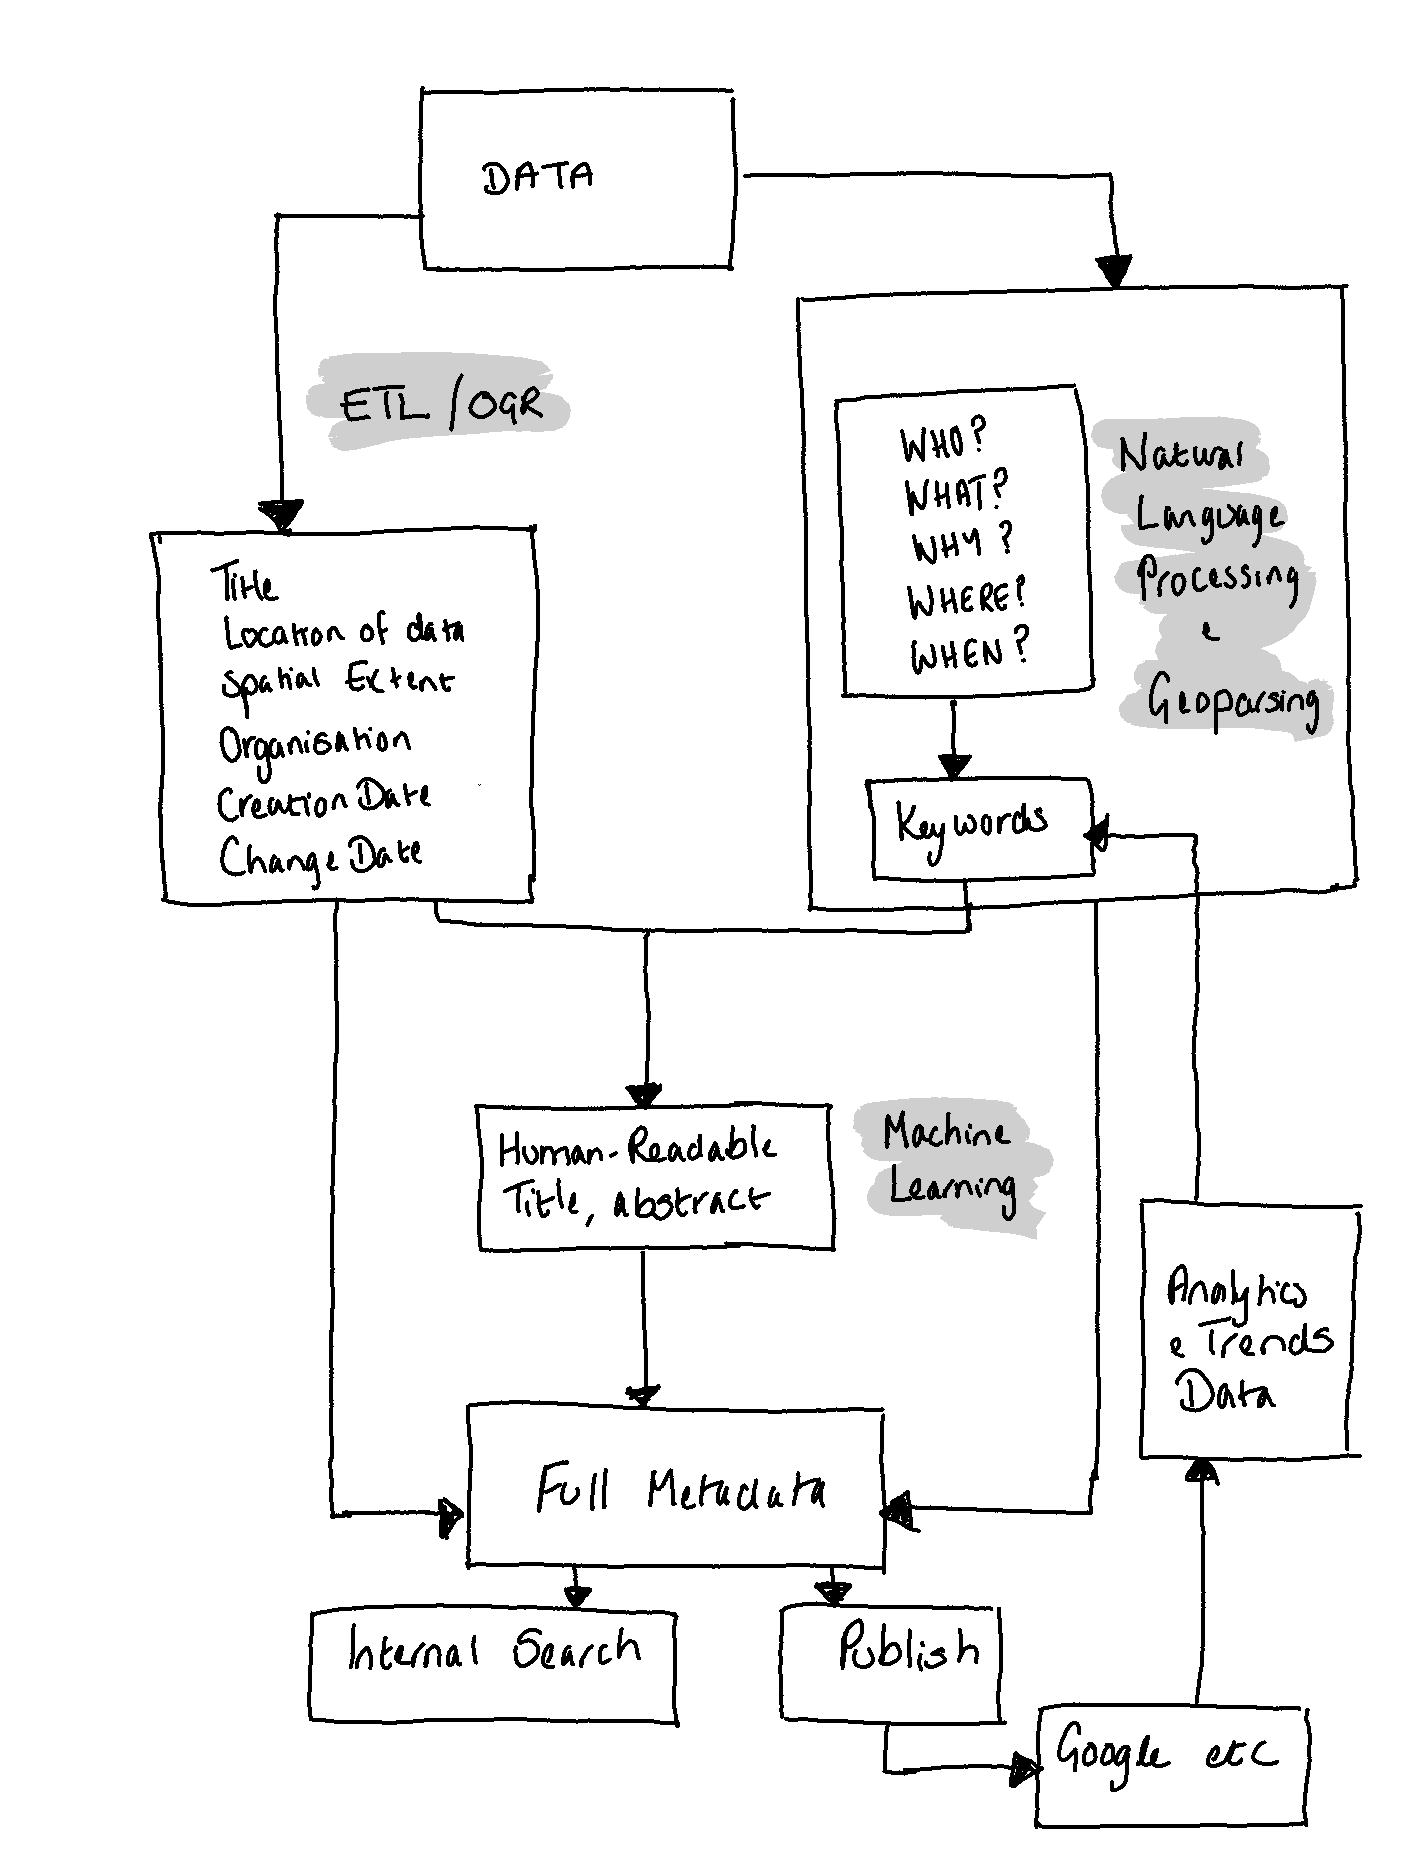 DATA
ETL/OGR
Title
Location of data
Spatial Extent
Organisation
Creation Date
Change Date
WHO?
WHAT?
WHY?
WHERE?
WHEN?
Natural
Language
Processing
e
Geoparsing
Keywords
Human-Readable
Title, abstract
Machine
Learning
Analytics
e Trends
Data
Full Metadata
Internal Search
Publish
Google etc